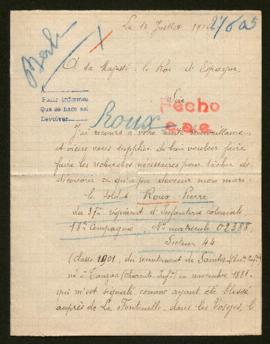 Le 12 Juillet
A sa Majesté le Roi d'Espagne,
Sire
Roux
Fecho
J'ai recours à votre haute bienveillance
et viens vous supplier de bien vouloir faire
faire les recherches nécessaires pour tâcher de
découvrir ce qu'a pu devenir mon mari
le soldat Roux Pierre
du 37e régiment d'Infanterie coloniale
18e Compagnie No matricule 02388
Secteur 44
(classe 1901, du recrutement de Saintes
né à (Charente Infre) en novembre 1881
qui m'est signalé comme ayant été blessé
auprès de La Fontenelle, dans les Vosges, le